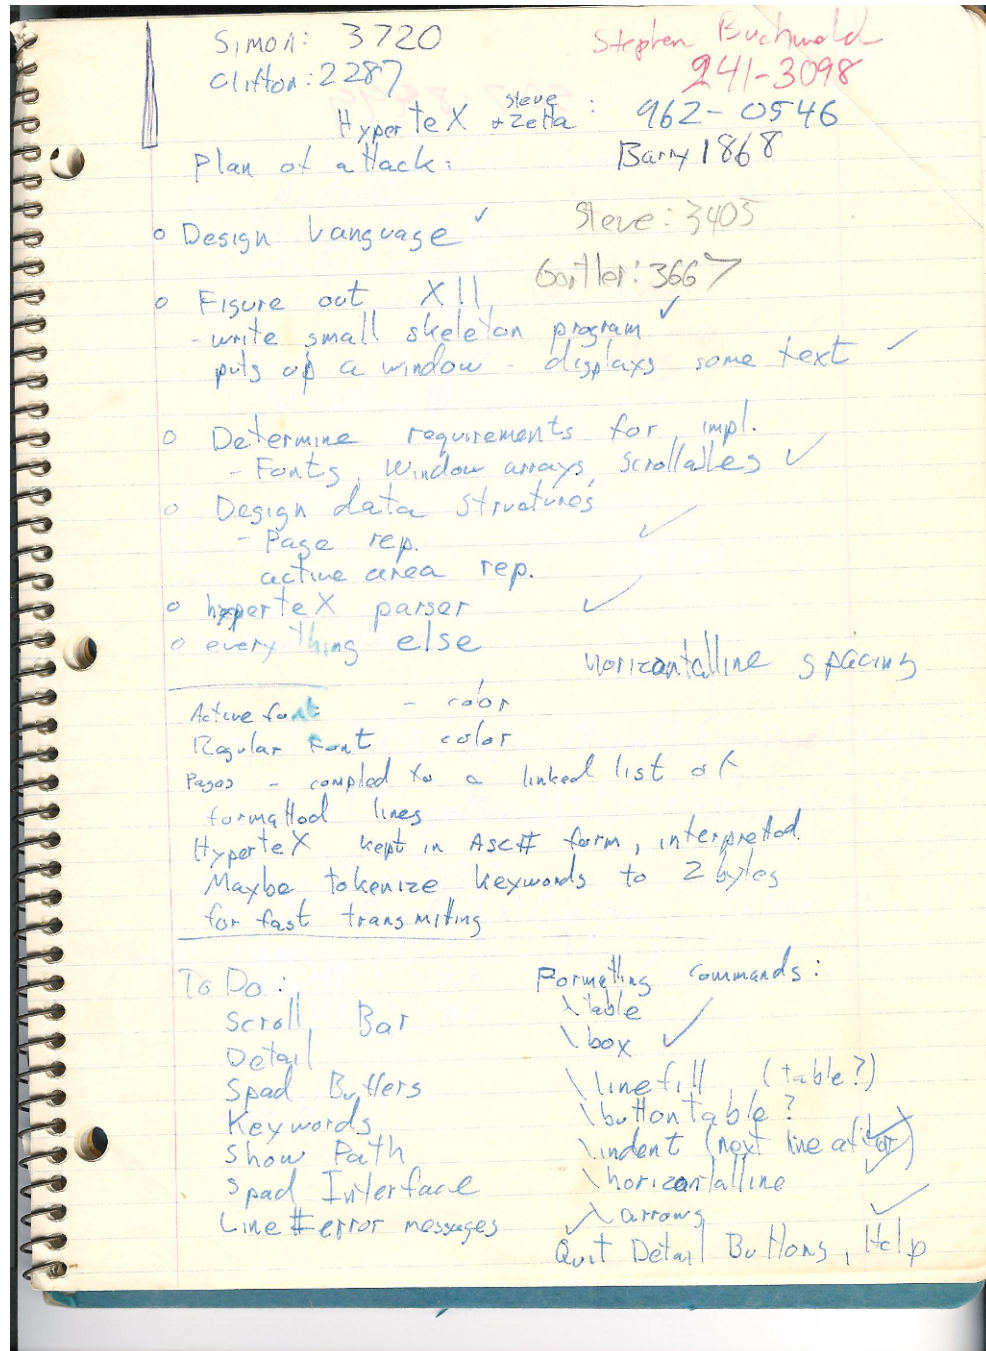 Simon: 3720
Stephen Buchwald
Clifton: 2287
241-3098
HyperteX steve + Zetta : 962-0546
Plan of attack:
Barry 1868
Steve: 3405
o Design Language ✓
Gortler: 3667
o Figure out X11
- write small skeleton program ✓
puts up a window - displays some text ✓
o Determine requirements for impl.
- Fonts, Window arrays, scrollables ✓
o Design data structures
- Page rep. ✓
active area rep.
o hyperteX parser ✓
o everything else
horizontalline spacing
Active font - color
Regular Font color
Pages - compled to a linked list of
formatted lines
HyperteX kept in ASCII form, interpretted.
Maybe tokenize keywords to 2 bytes
for fast transmitting
To Do:
Scroll Bar
Detail
Spad Buffers
Keywords
Show Path
Spad Interface
Line # error messages
Formatting commands:
\table
\box ✓
\linefill (table?)
\buttontable?
\indent (next line at
\horizontalline
✓ \arrows
Quit Detail Buttons, Help ✓